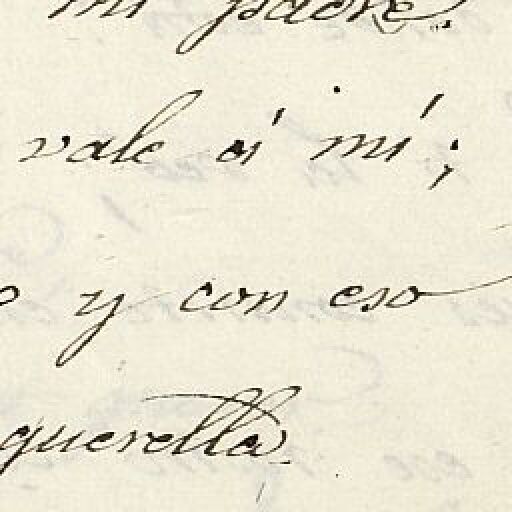 mi padre.
vale á mí;
y con eso
querella.